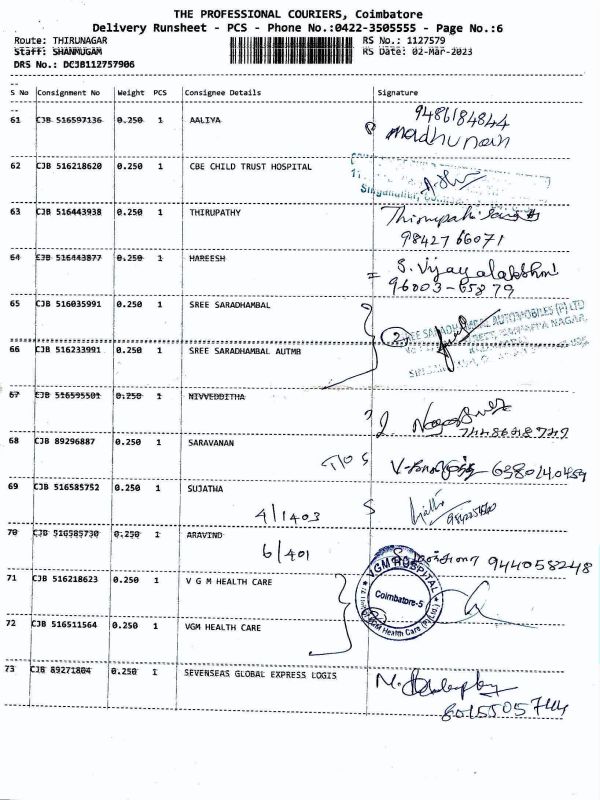 THE PROFESSIONAL COURIERS, Coimbatore
Delivery Runsheet - PCS - Phone No.:0422-3505555 - Page No.:6
Route: THIRUNAGAR RS No.: 1127579
Staff: SHANMUGAM RS Date: 02-Mar-2023
DRS No.: DCJB112757906
S No Consignment No Weight PCS Consignee Details Signature
61 CJB 516597136 0.250 1 AALIYA 9486184844
madhu
62 CJB 516218620 0.250 1 CBE CHILD TRUST HOSPITAL
Singanallur,
63 CJB 516443938 0.250 1 THIRUPATHY
9842766071
64 CJB 516443877 0.250 1 HAREESH = S. Vijayalakshmi
96003-65879
65 CJB 516035991 0.250 1 SREE SARADHAMBAL 2 SREE SARADHAMBAL AUTOMOBILES (P) LTD
66 CJB 516233991 0.250 1 SREE SARADHAMBAL AUTMB
67 CJB 516595501 0.250 1 NIVVEDDITHA
68 CJB 89296887 0.250 1 SARAVANAN
69 CJB 516585752 0.250 1 SUJATHA
4/1403
70 CJB 516585730 0.250 1 ARAVIND 9444058248
6/401
71 CJB 516218623 0.250 1 V G M HEALTH CARE VGM HOSPITAL
Coimbatore-5
72 CJB 516511564 0.250 1 VGM HEALTH CARE VGM Health Care (P) Ltd.
73 CJB 89271804 0.250 1 SEVENSEAS GLOBAL EXPRESS LOGIS M.